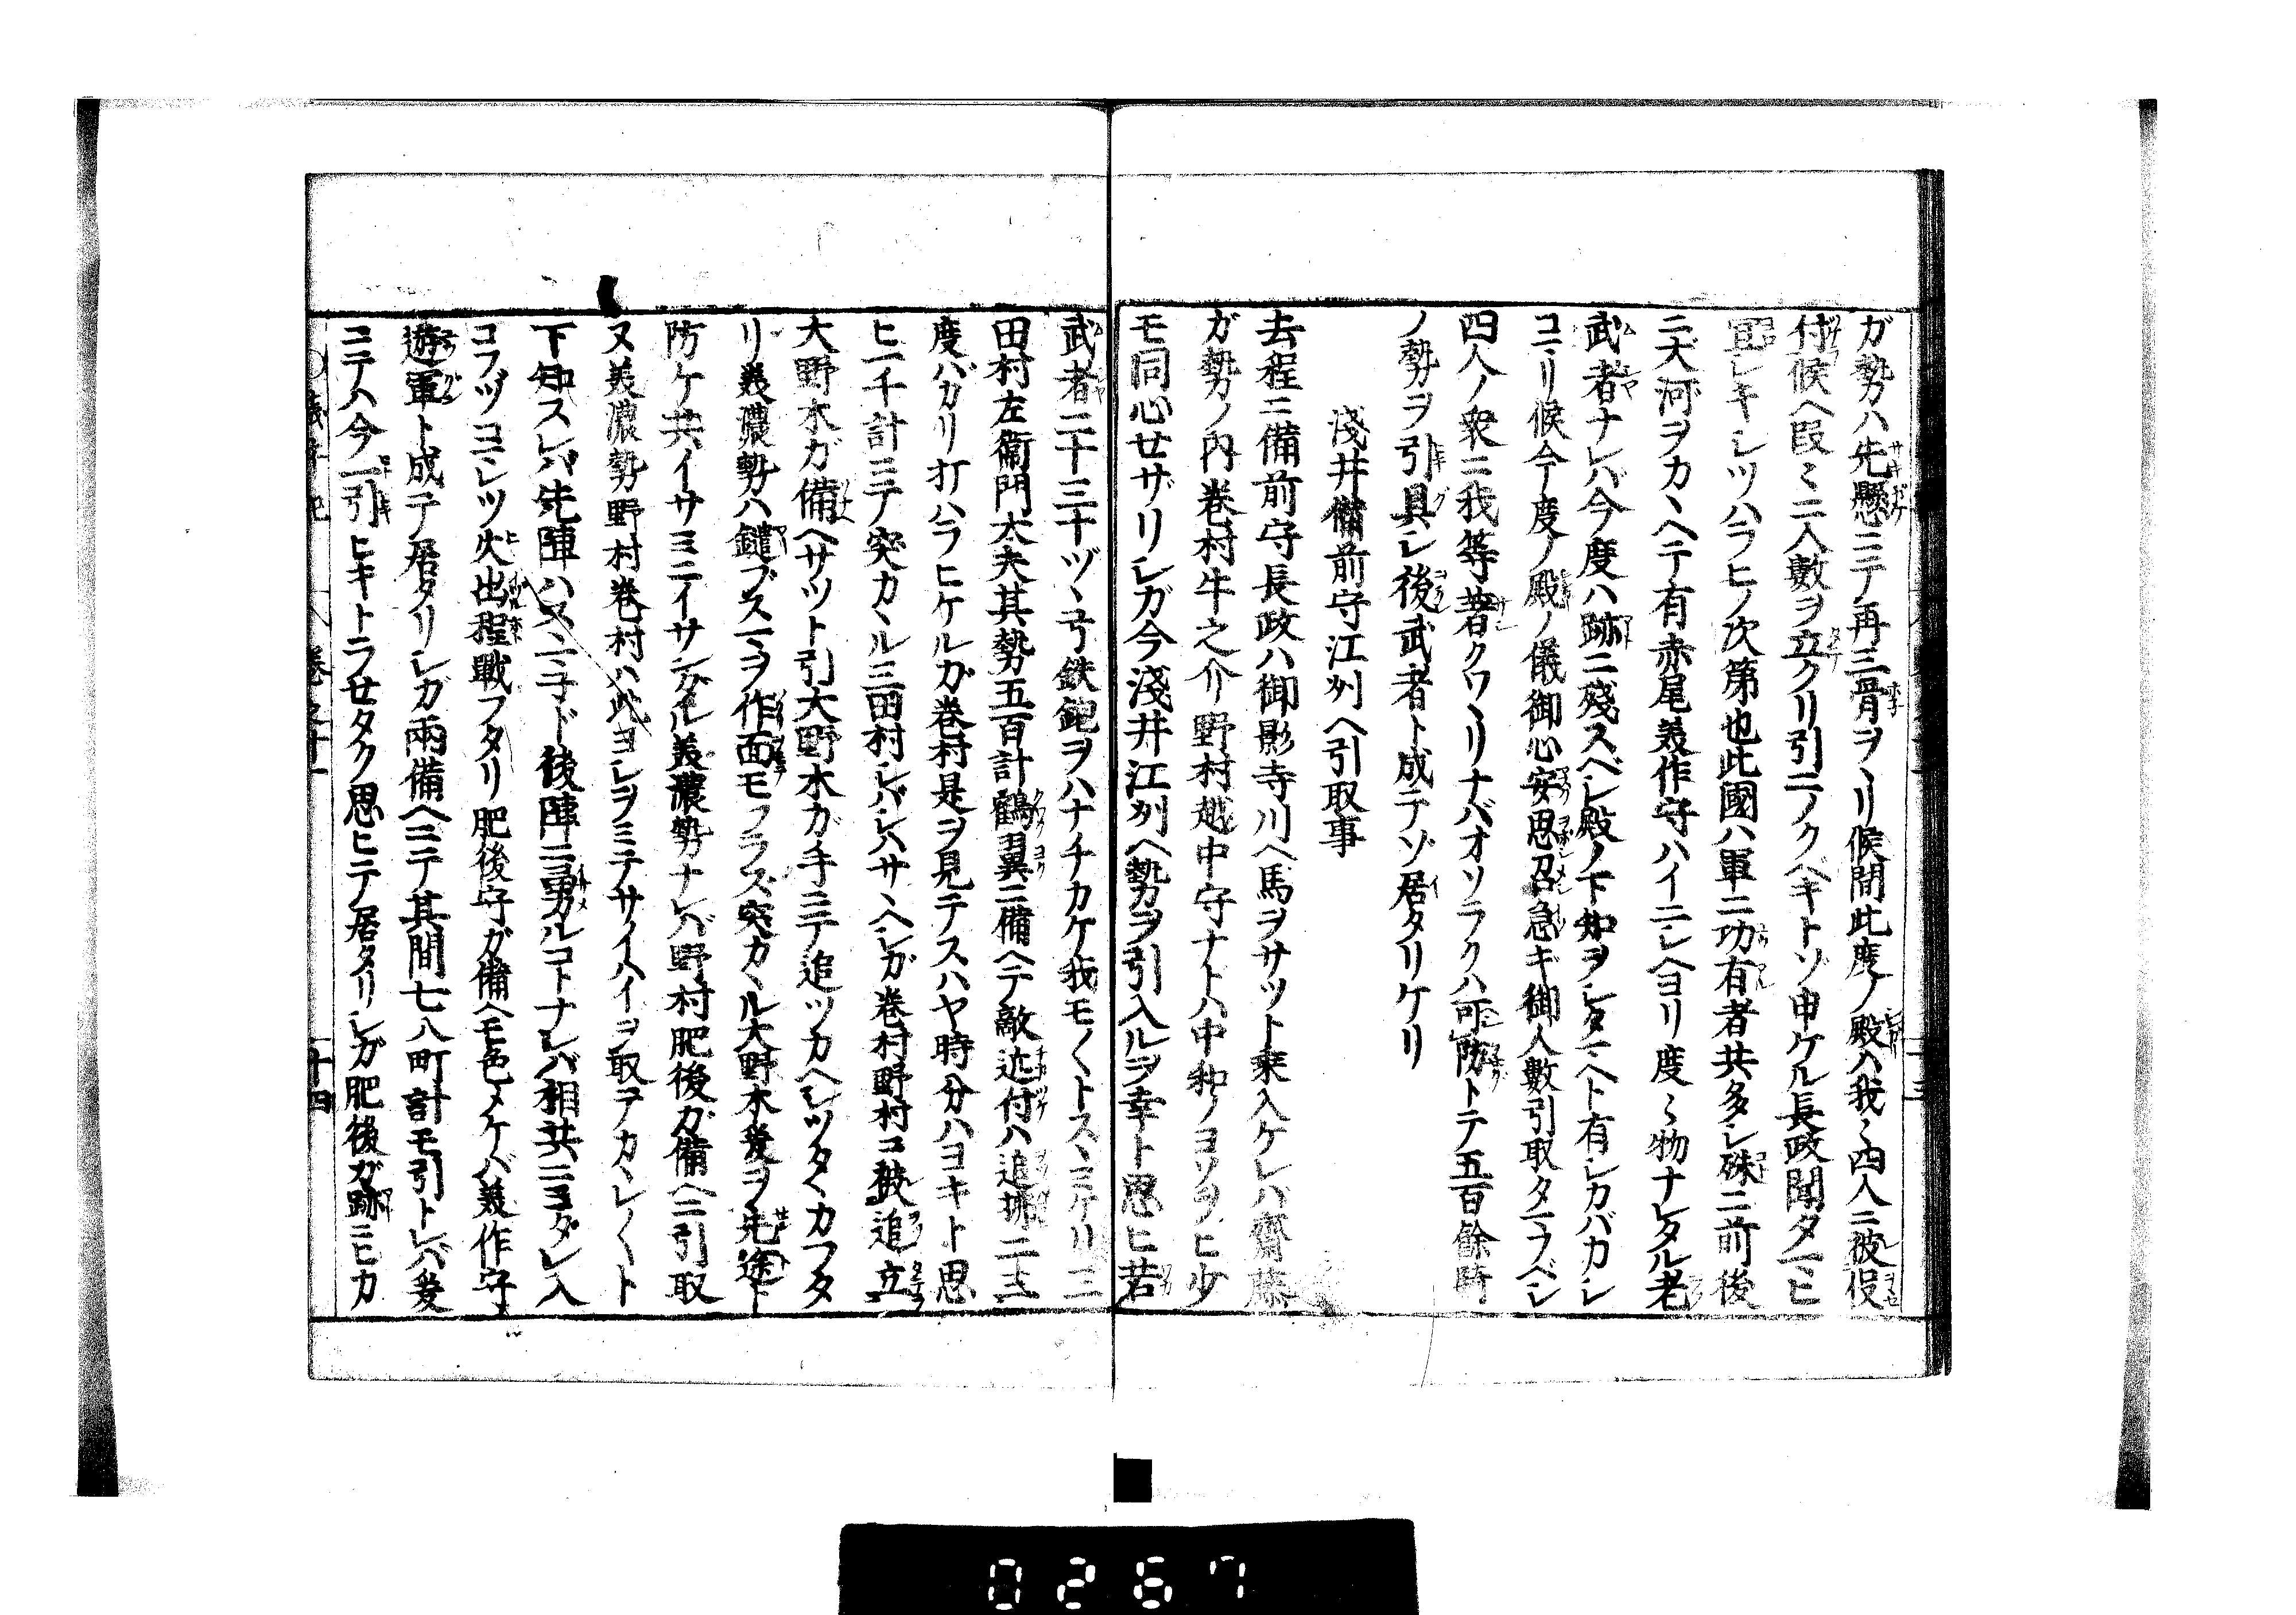 ガ勢ハ先懸ニテ再三骨ヲヽリ候間此度ノ殿ハ我〻四人ニ被仰
付候ヘ段〻ニ人數ヲ立クリ引ニノクベキトソ申ケル長政聞タマヒ
宜レキレツハラヒノ次第也此國ハ軍ニ功有者共多レ殊ニ前後
ニ大河ヲカヽヘテ有赤尾美作守ハイニレヘヨリ度〻物ナレタル老
武者ナレバ今度ハ跡ニ殘スベレ殿ノ下知ヲレタマヘト有レカバカレ
コマリ候今度ノ殿ノ儀御心安思召急キ御人數引取タマフベレ
四人ノ衆ニ我等著クワヽリナバオソラクハ可防トテ五百餘時
ノ勢ヲ引具レ後武者ト成テゾ居タリケリ
淺井備前守江州ヘ引取事
去程ニ備前守長政ハ御影寺川ヘ馬ヲサツト乘入ケレハ齋藤
ガ勢ノ内巻村牛之介野村越中守ナトハ中〻ノヨソヲヒ少
モ同心せザリレガ今淺井江州ヘ勢ヲ引入ルヲ幸ト思ヒ若
武者二十三十ヅヽ弓鉄砲ヲハナチカケ我モ〱トスヽミケリ三
田村左衞門太夫其勢五百計鶴翼ニ備ヘテ敵近付ハ追拂二三
度バカリ打ハラヒケルガ巻村是ヲ見テスハヤ時分ハヨキト思
ヒ一千計ニテ突カヽル三田村レバレハサヽヘレガ巻村野村ニ被追立
大野木ガ備ヘサツト引大野木ガ手ニテ追ツカヘレツタヽカフタ
リ美濃勢ハ鑓ブスマヲ作面モフラズ突カヽル大野木爰ヲ先途ト
防ケ共イサミニイサンダル美濃勢ナレバ野村肥後ガ備ヘニ引取
ヌ美濃勢野村巻村ハ此ヨレヲミテサイハイヲ取テカヽレ〱ト
下知スレバ先陣ハヌヽマ子ド後陣ニ勇カルコトナレバ相共ニヨダレ入
コフヅコミレツ火出程戰フタリ肥後守ガ備ヘモ色メケバ美作守
遊軍ト成テ居タリレガ兩備ヘニテ其間七八町計モ引トレバ爰
ニテハ今一引ヒキトラせタク思ヒテ居タリレガ肥後ガ跡ニヒカ
巻之十一
十四
0267